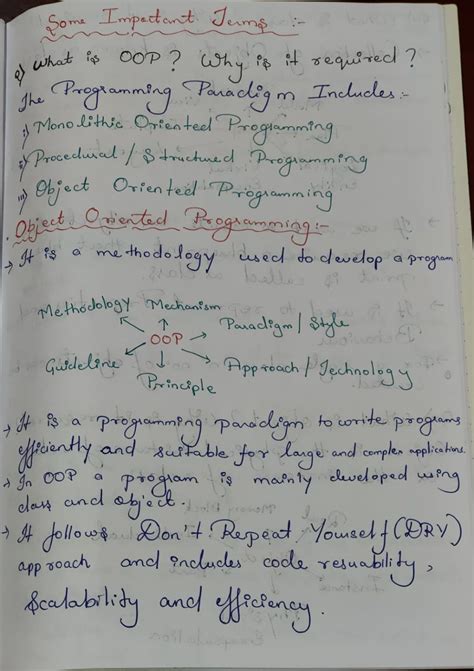 Some Important Terms :-
Q) What is OOP? Why is it required?
The Programming Paradigm Includes:-
i) Monolithic Oriented Programming
ii) Procedural / Structured Programming
iii) Object Oriented Programming
Object Oriented Programming:-
→ It is a methodology used to develop a program
Methodology Mechanism
Paradigm / Style
OOP
Guideline
Approach / Technology
Principle
→ It is a programming paradigm to write programs
efficiently and suitable for large and complex applications.
→ In OOP a program is mainly developed using
class and object.
→ It follows Don't Repeat Youself (DRY)
approach and includes code resuability,
Scalability and efficiency.